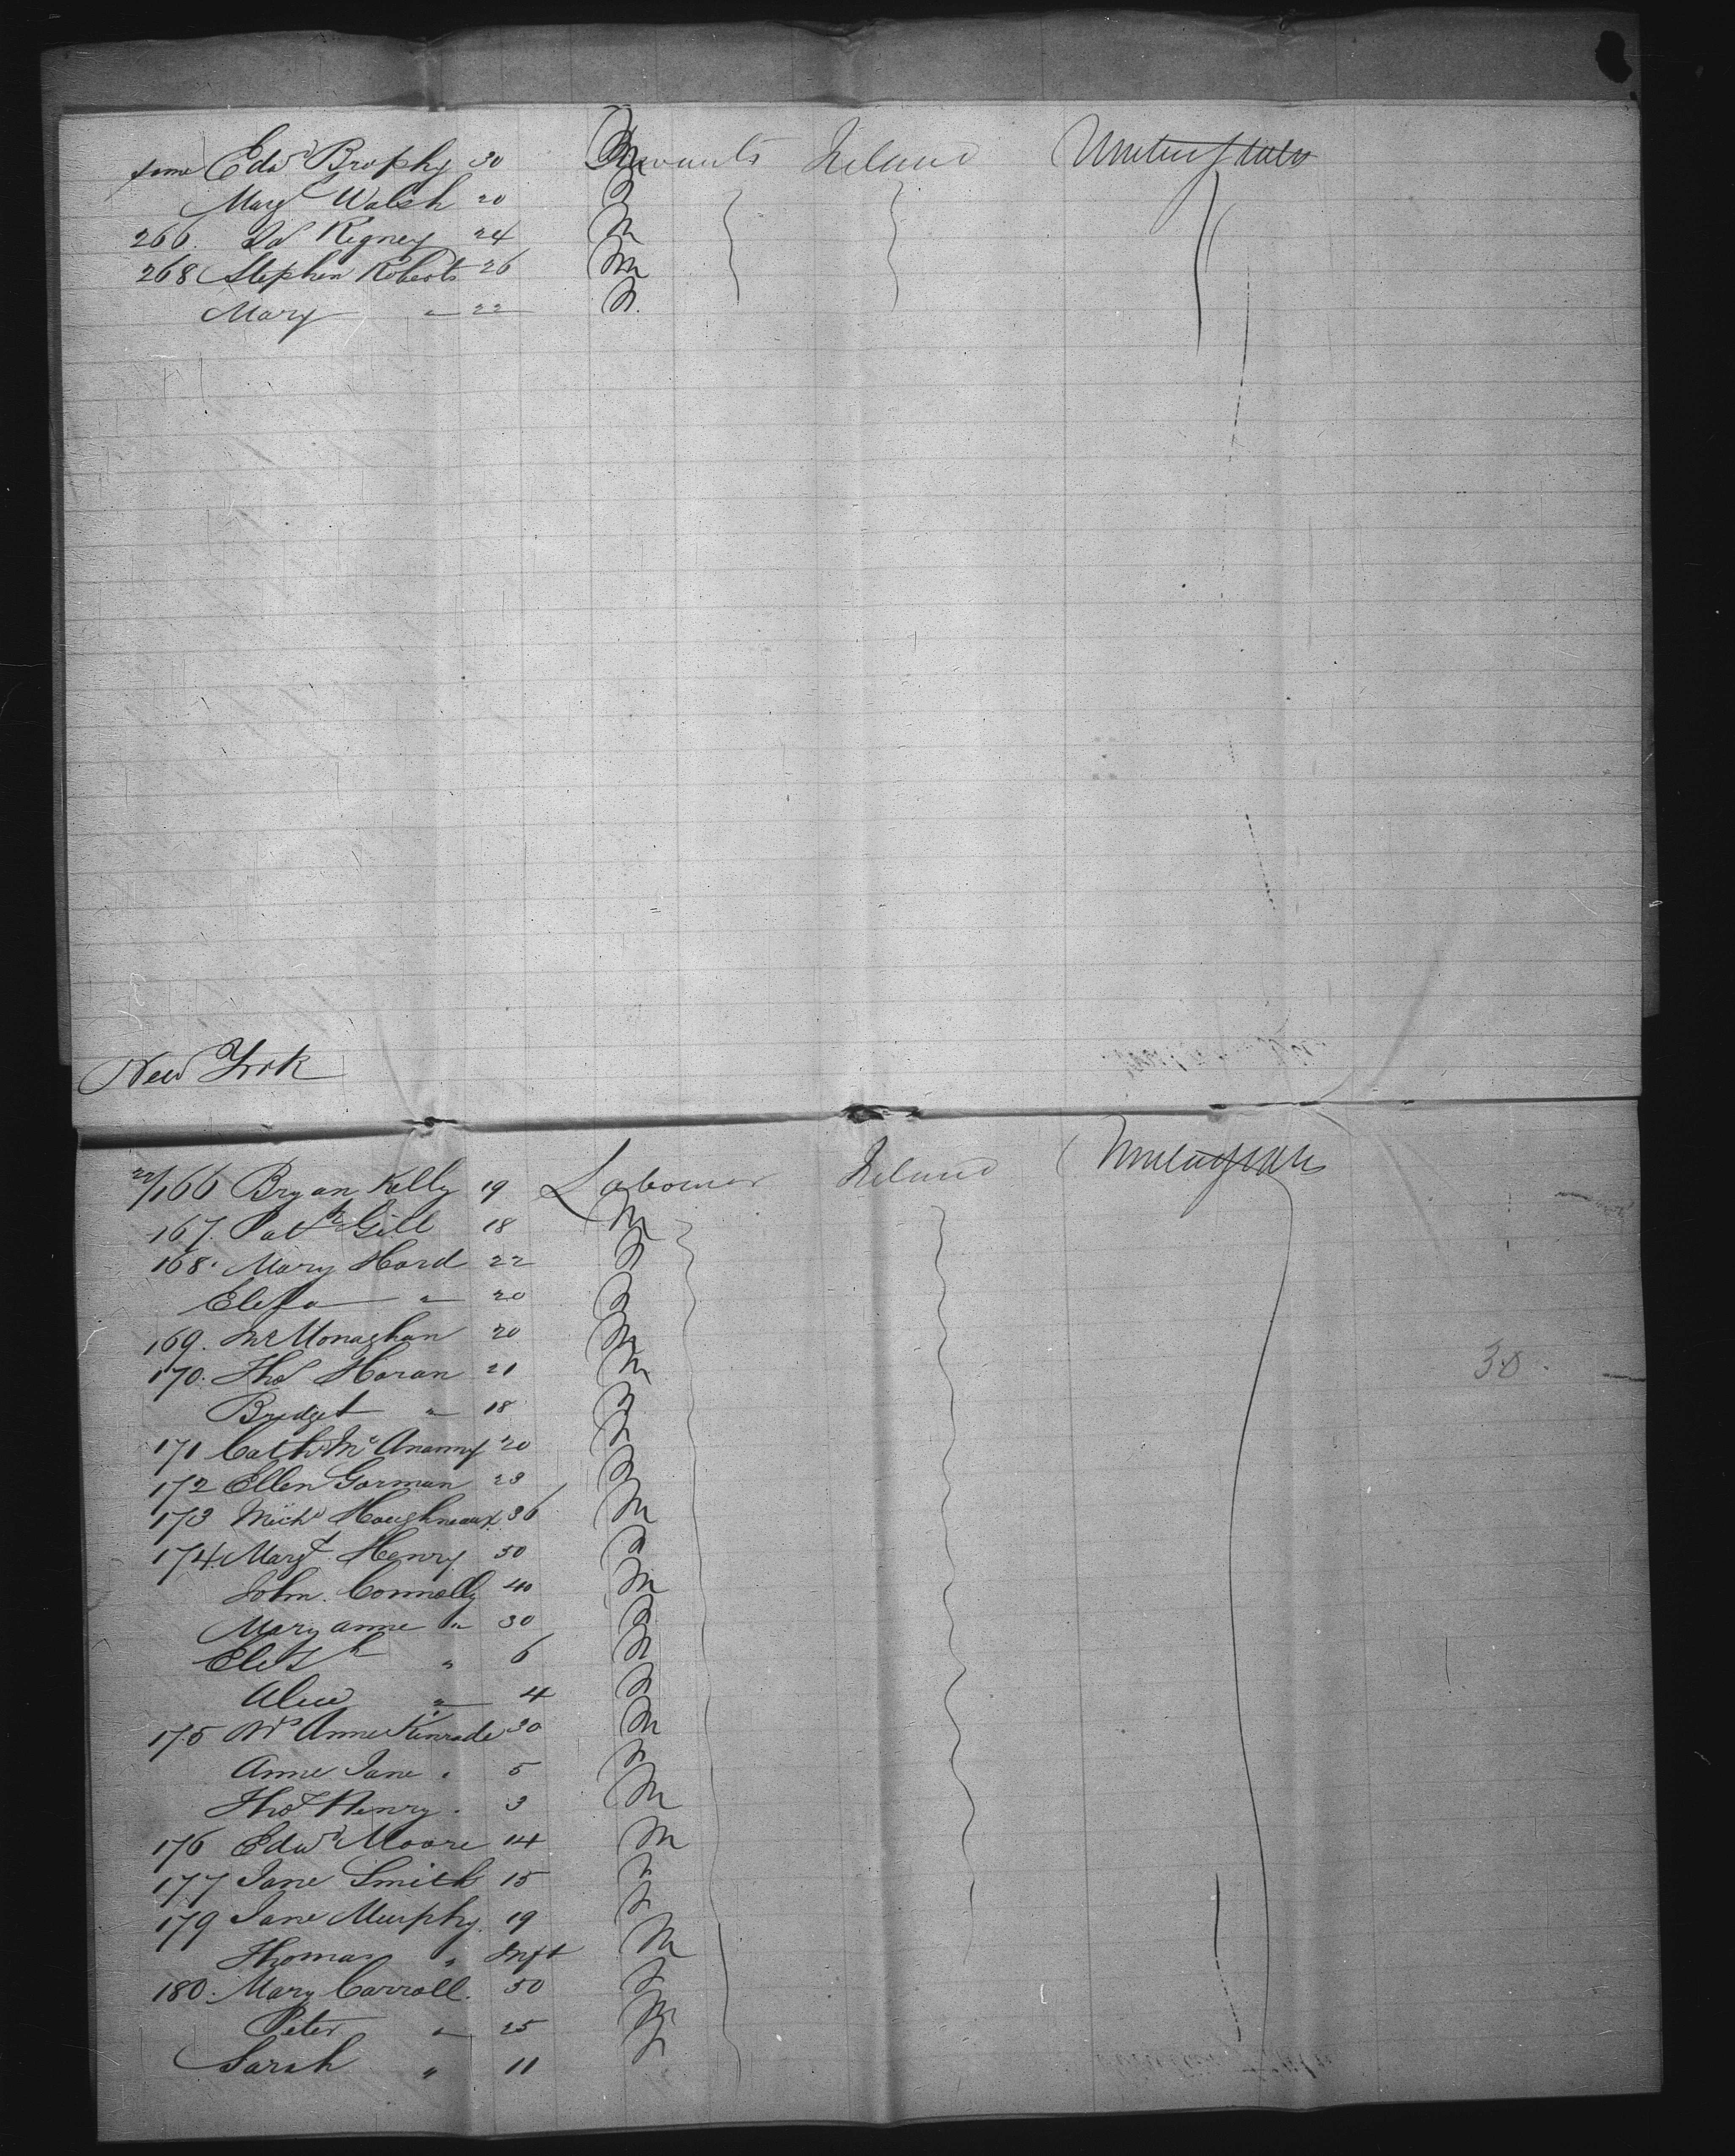 same Edwd Brophy 30 M Servants Ireland United States
Margt Walsh 20 F
266. Jas Rigney 24 M
268 Stephen Roberts 26 M
Mary " 22 F
New York
22/166 Bryan Kelly 19 Labourer Ireland United States
167. Patk Gill 18 M
168. Mary Hard 22 F
Eliza " 20 F
169. Monaghan 20 M
170. Thos Horan 21 M
Bridget " 18 F
171 Cathe McAnanny 20 F
172 Ellen Gorman 23 F
173 Michl Houghneaux 36 M
174. Margt Henry 50 F
John Connolly 40 M
Mary anne " 30 F
Elizh " 6 F
Alice " 4 F
175 Anne Kinrade 30 M
Anne Jane " 5 F
Thos Henry " 3 M
176 Edwd Moore 14 M
177 Jane Smith 15 F
179 Jane Murphy 19 F
Thomas " Inft M
180. Mary Carroll. 50 F
Peter " 25 M
Sarah " 11 F
30